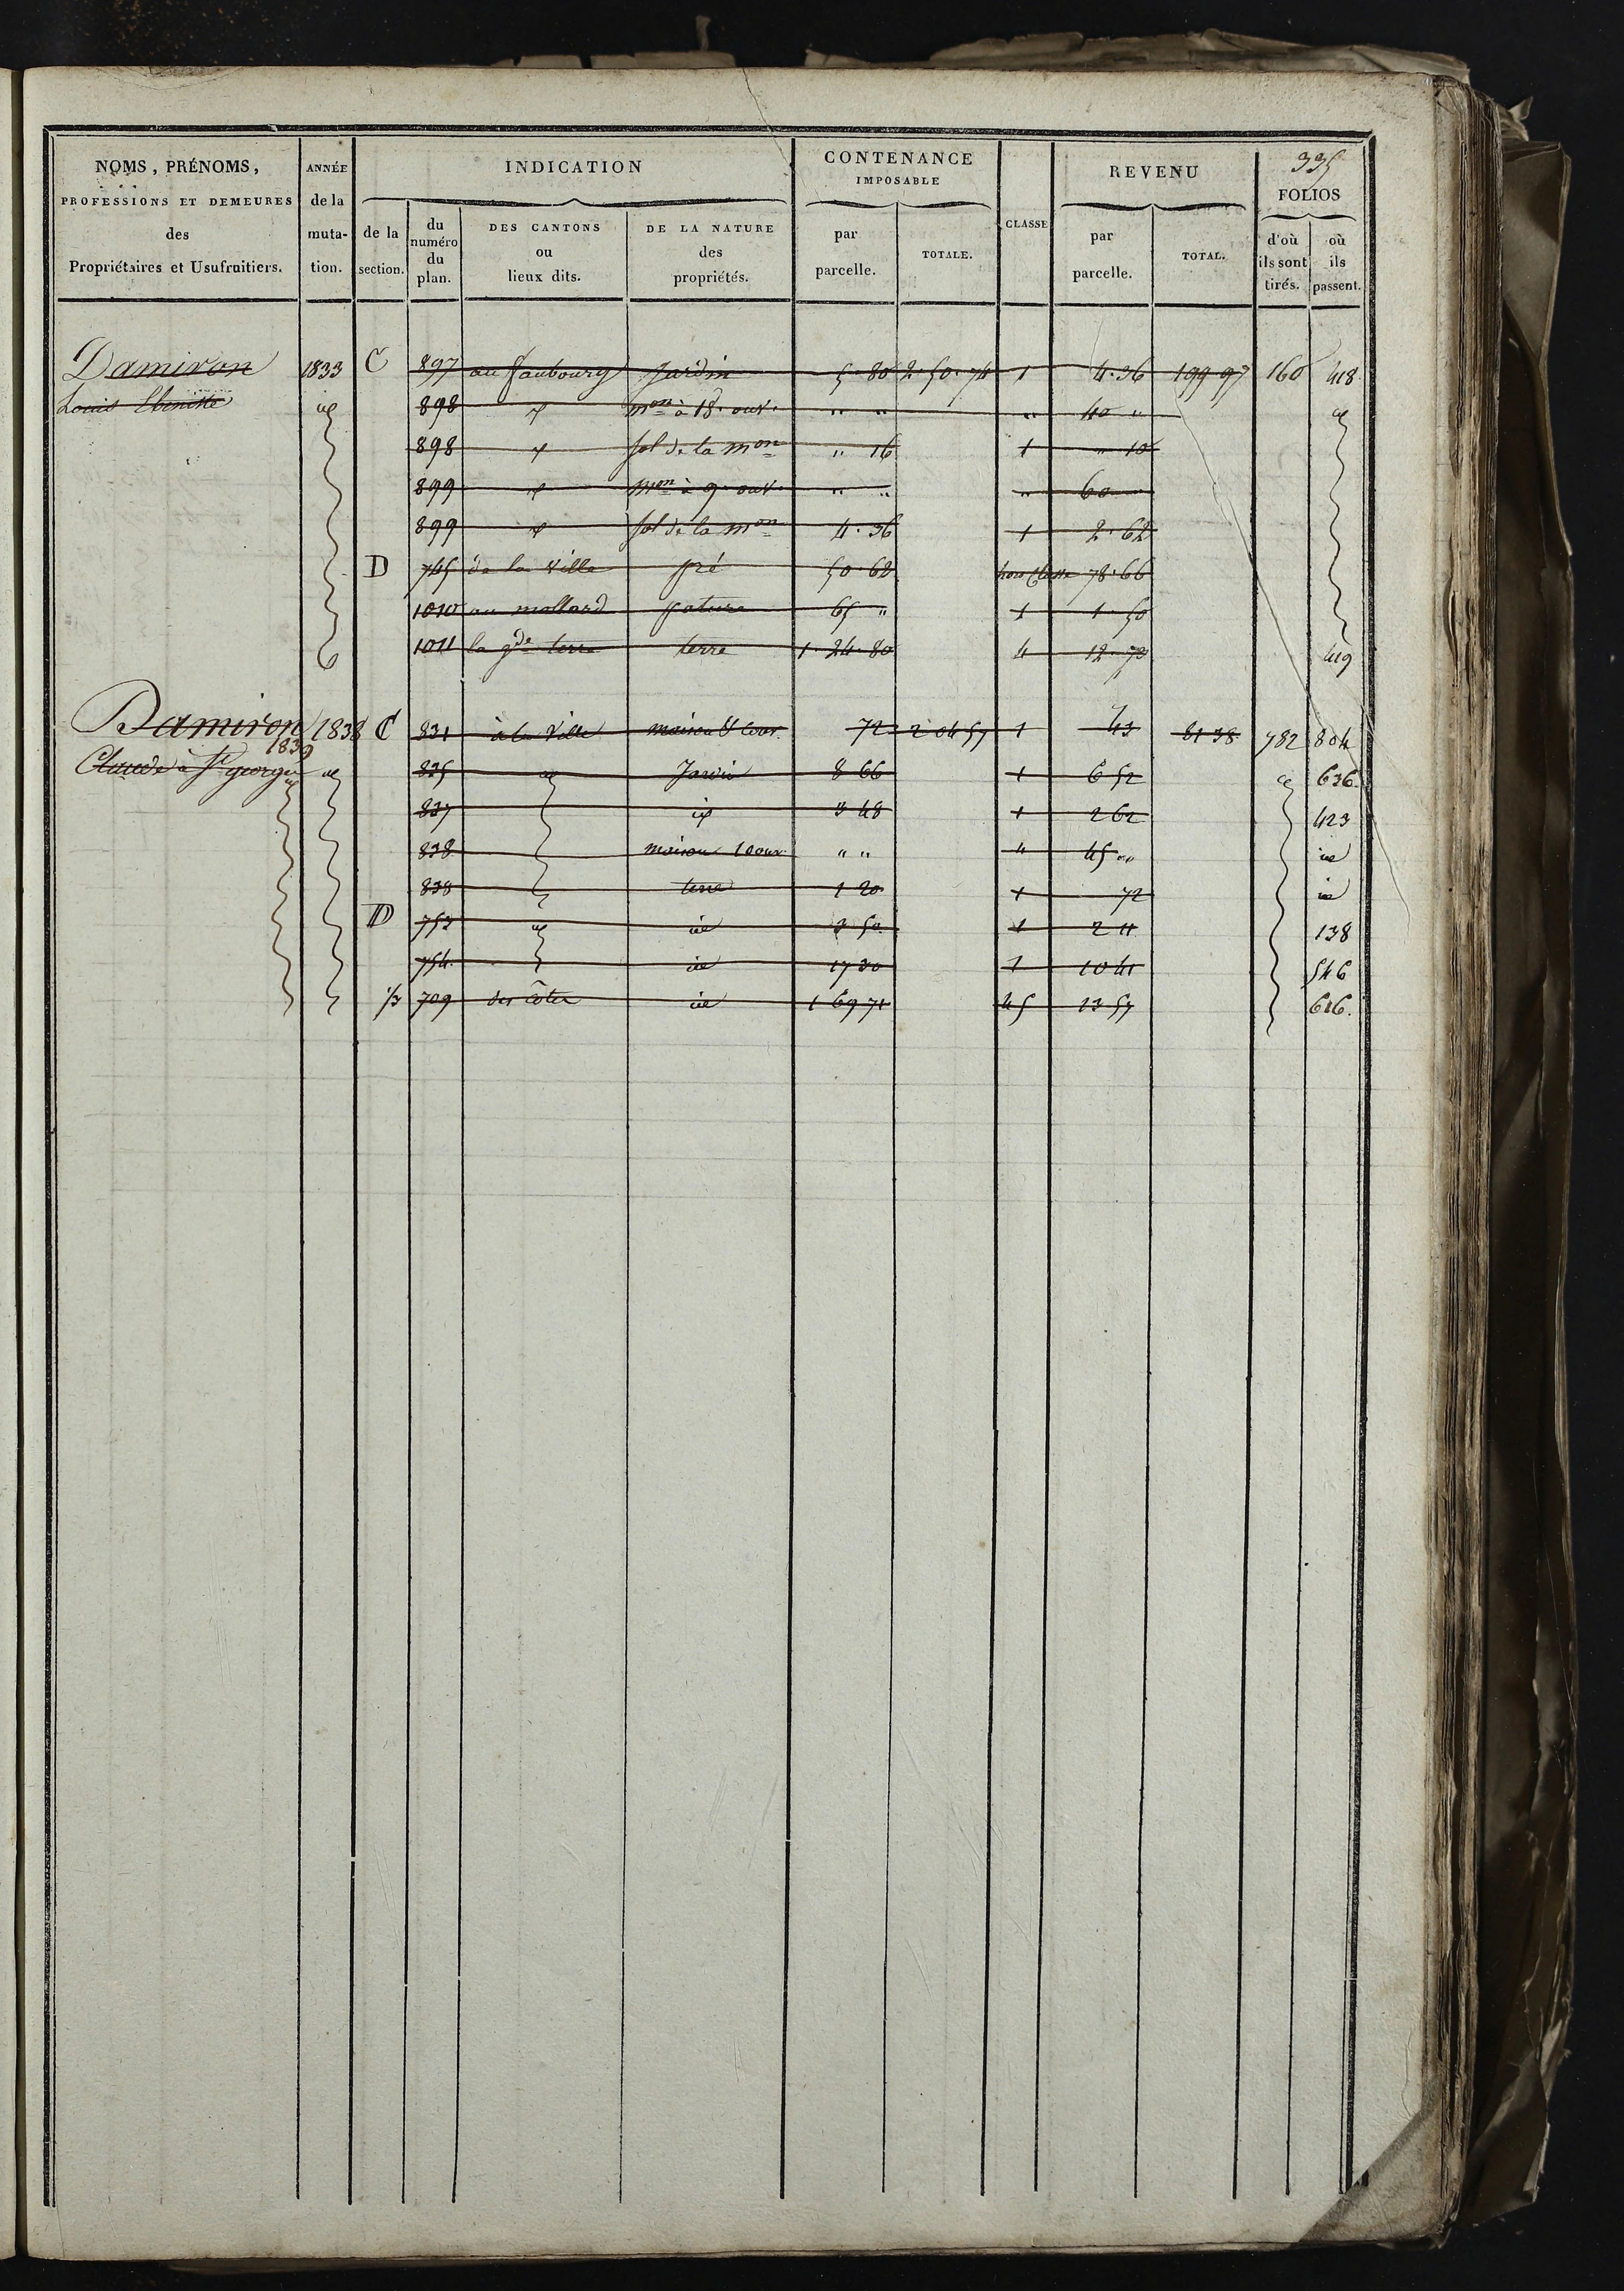 335
NOMS, PRÉNOMS, PROFESSIONS ET DEMEURES des Propriétaires et Usufruitiers.
ANNÉE de la muta- tion.
INDICATION
de la section.
du numéro du plan.
DES CANTONS ou lieux dits.
DE LA NATURE des propriétés.
CONTENANCE IMPOSABLE
par parcelle.
TOTALE.
CLASSE
REVENU
par parcelle.
TOTAL.
FOLIOS
d'où ils sont tirés.
où ils passent.
Damiron 1833 C 897 au faubourg Jardin 5·80 2·50·74 1 4·36 199 97 160 418
Louis id 898 id mon à 18 ouv. " " " 40 " id
898 id sol de la mon " 16 1 " 10
899 id mon à 9 ouv. " " " 60 "
899 id sol de la mon 4·36 1 2·62
D 745 de la Ville pré 50·62 hors Classe 78·66
1010 au mollard pature 65 " 1 1·50
1011 la gde terre terre 1·24·80 4 12·73 419
Damiron 1838 C 831 à la Ville maison & cour 72 2 04 57 1 43 81 38 782 804
1839
Claude à St george id 835 id Jardin 8 66 1 6 52 id 636
837 id 3 48 1 2 62 423
838 maison 10 ouv. " " " 45 " id
838 terre 1 20 1 72 id
D 753 id id 3 50 1 2 11 138
754 id 17 30 1 10 41 546
1/3 709 des côtes id 1 69 71 45 13 57 616.